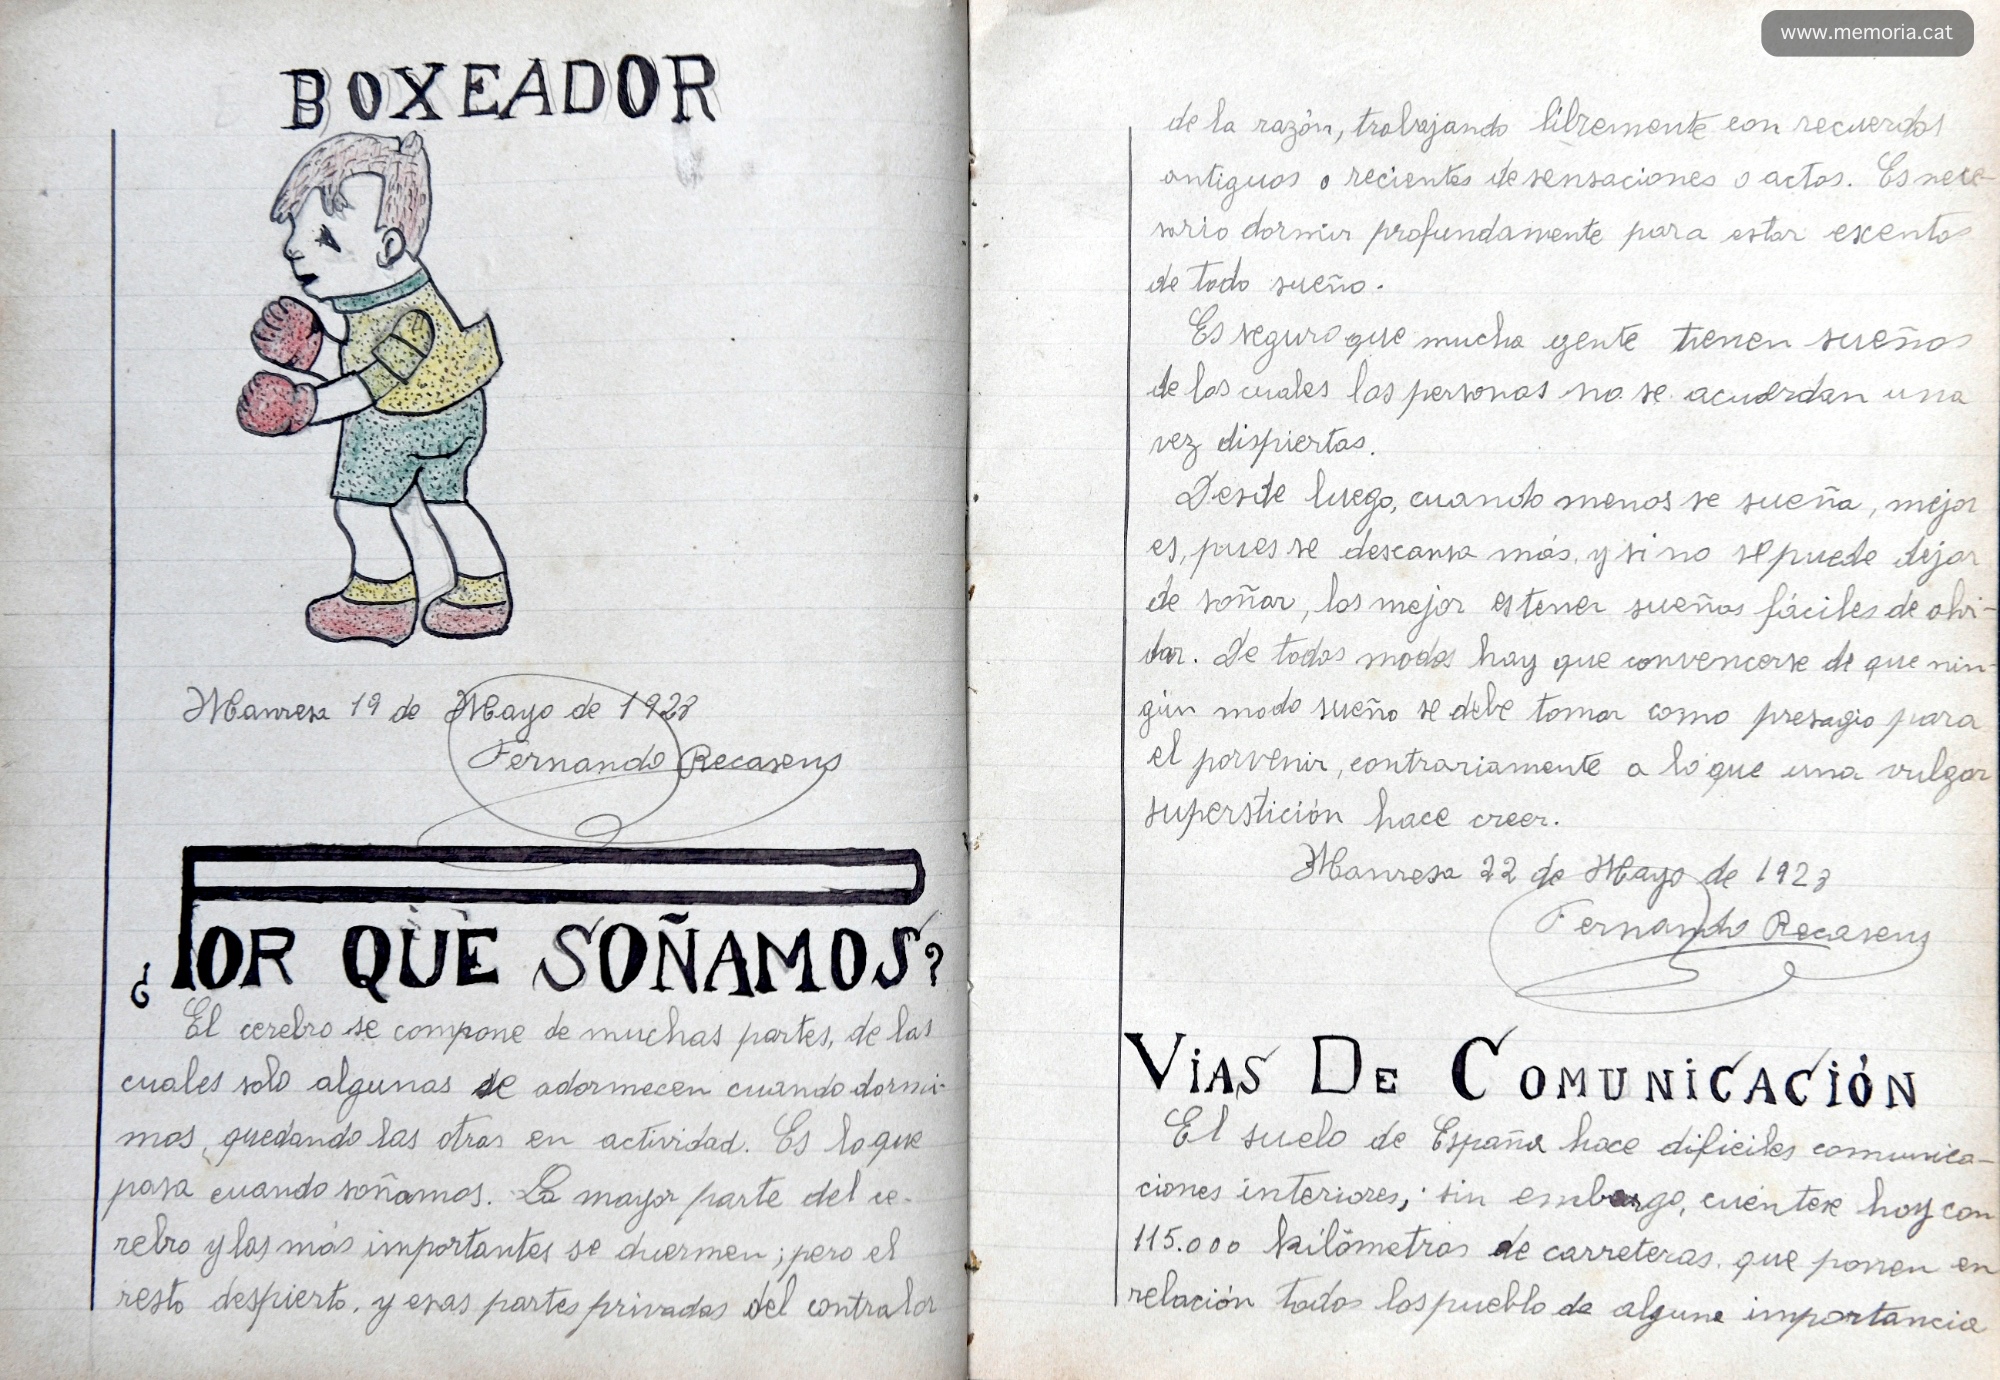 BOXEADOR
Manresa 19 de Mayo de 1928
Fernando Recasens
¿POR QUÉ SOÑAMOS?
El cerebro se compone de muchas partes, de las
cuales solo algunas se adormecen cuando dormi-
mos, quedando las otras en actividad. Es lo que
pasa cuando soñamos. La mayor parte del ce-
rebro y las más importantes se duermen; pero el
resto despierto, y esas partes privadas del contralor
www.memoria.cat
de la razón, trabajando libremente con recuerdos
antiguos o recientes de sensaciones o actos. Es nece-
sario dormir profundamente para estar exentos
de todo sueño.
Es seguro que mucha gente tienen sueños
de los cuales las personas no se acuerdan una
vez dispiertas.
Desde luego, cuando menos se sueña, mejor
es, pues se descansa más, y si no se puede dejar
de soñar, los mejor es tener sueños fáciles de olvi-
dar. De todos modos hay que convencerse de que nin-
gún modo sueño se debe tomar como presagio para
el porvenir, contrariamente a lo que una vulgar
superstición hace creer.
Manresa 22 de Mayo de 1928
Fernando Recasens
VIAS DE COMUNICACIÓN
El suelo de España hace dificiles comunica-
ciones interiores; sin embargo, cuéntese hoy con
115.000 kilómetros de carreteras, que ponen en
relación todos los pueblo de alguna importancia